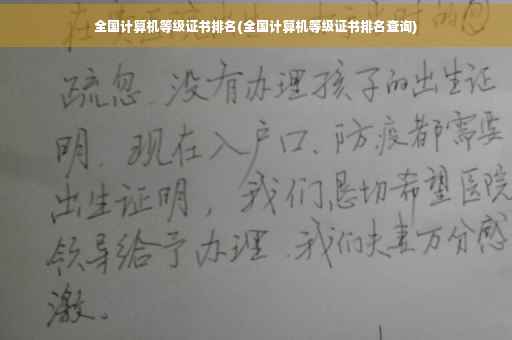 全国计算机等级证书排名(全国计算机等级证书排名查询)
疏忽、没有办理孩子的出生证
明、现在入户口、防疫都需要
出生证明，我们恳切希望医院
领导给予办理、我们夫妻万分感
激。